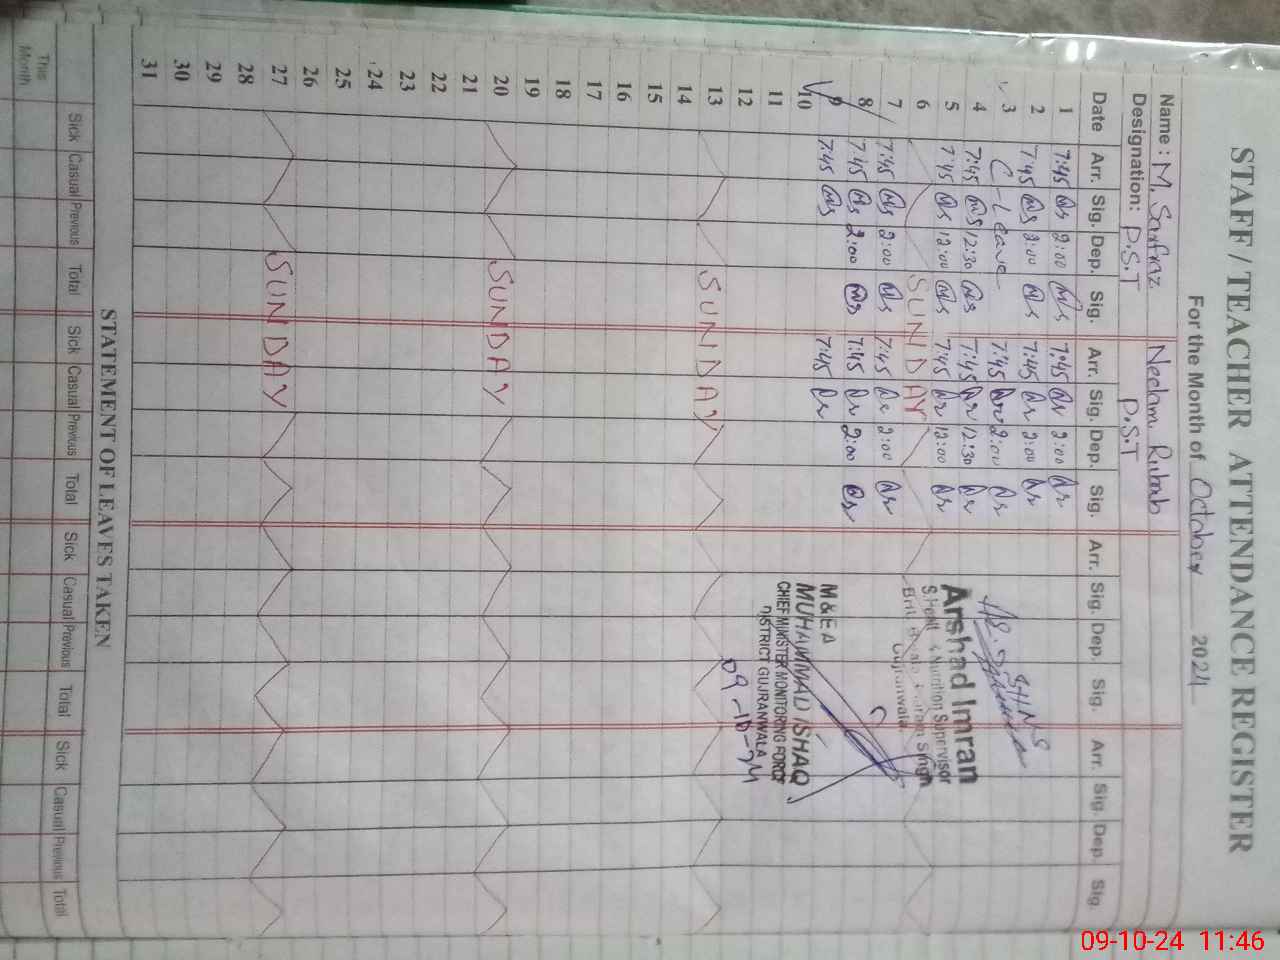 STAFF / TEACHER ATTENDANCE REGISTER
For the Month of October 2024
Name : M. Sarfraz Neelam Rubab
Designation: P.S.T P.S.T
Date Arr. Sig. Dep. Sig. Arr. Sig. Dep. Sig. Arr. Sig. Dep. Sig. Arr. Sig. Dep. Sig.
1 7:45 2:00 7:45 2:00
2 7:45 2:00 7:45 2:00
3 C-Leave 7:45 2:00
4 7:45 12:30 7:45 12:30
5 7:45 12:00 7:45 12:00
6 SUNDAY
7 7:45 2:00 7:45 2:00
8 7:45 2:00 7:45 2:00
9 7:45 7:45
10
11
12
13 SUNDAY
14
15
16
17
18
19
20 SUNDAY
21
22
23
24
25
26
27 SUNDAY
28
29
30
31
SHNS
Arshad Imran
& Nutrition Supervisor
Singh
Gujranwala.
M & E A
MUHAMMAD ISHAQ
CHIEF MINISTER MONITORING FORCE
DISTRICT GUJRANWALA
09-10-24
STATEMENT OF LEAVES TAKEN
Sick Casual Previous Total Sick Casual Previous Total Sick Casual Previous Total Sick Casual Previous Total
This Month
09-10-24 11:46